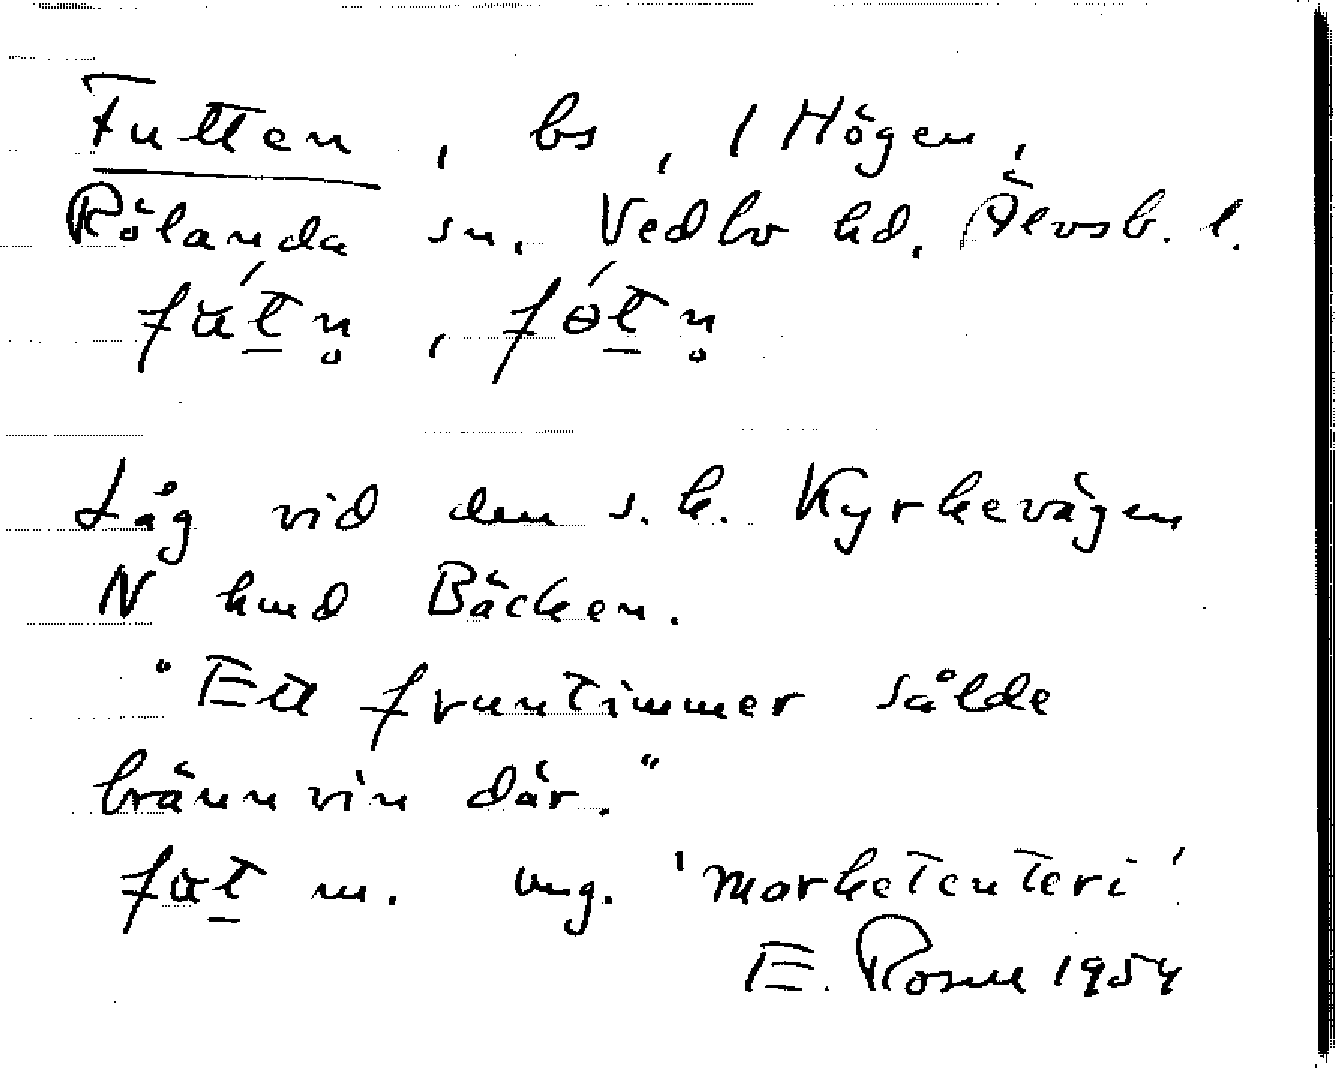 Futten, bs, 1 Högen,
Rölanda sn. Vedbo hd. Älvsb. l.
fútn̥, fótn̥
Låg vid den s.k. Kyrkevägen
N kmd Bäcken.
"Ett fruntimmer sålde
brännvin där."
fut m. ung. 'marketenteri'
E. Rosell 1954